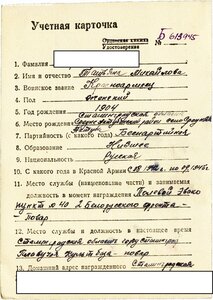 Учетная карточка
Орденская книжка
Удостоверение
№ Б 613945
1. Фамилия
2. Имя и отчество Татьяна Михайлова
3. Воинское звание Красноармеец
4. Пол женский
5. Год рождения 1904
6. Место рождения
7. Партийность (с какого года) Беспартийная
8. Образование Низшее
9. Национальность Русская
10. С какого года в Красной Армии С 1942 по 09.1945 г.
11. Место службы (наименование части) и занимаемая
должность в момент награждения Полевой Эвако
пункт № 40 2 Белорусского фронта -
повар
12. Место службы и должность в настоящее время
Сталинградская область город Сталинград
повар
13. Домашний адрес награжденного Сталинградская